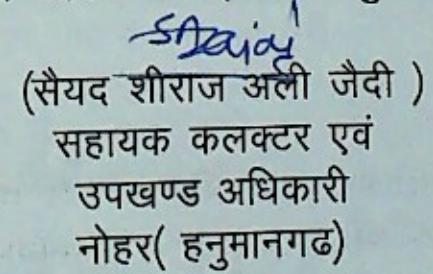 (सैयद शीराज अली जैदी )
सहायक कलक्टर एवं
उपखण्ड अधिकारी
नोहर( हनुमानगढ)